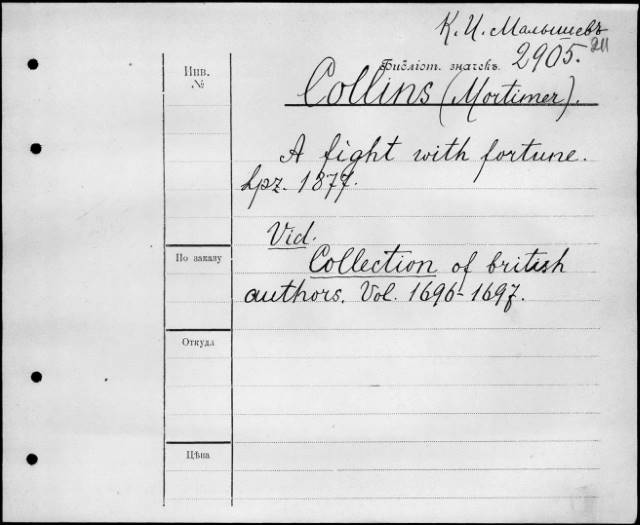 К. И. Малышевъ
Инв.
№
Библіот. значекъ.
2905.
Collins (Mortimer).
A fight with fortune.
Lpz. 1877.
Vid.
Collection of british
authors. Vol. 1696-1697.
По заказу
Откуда
Цѣна